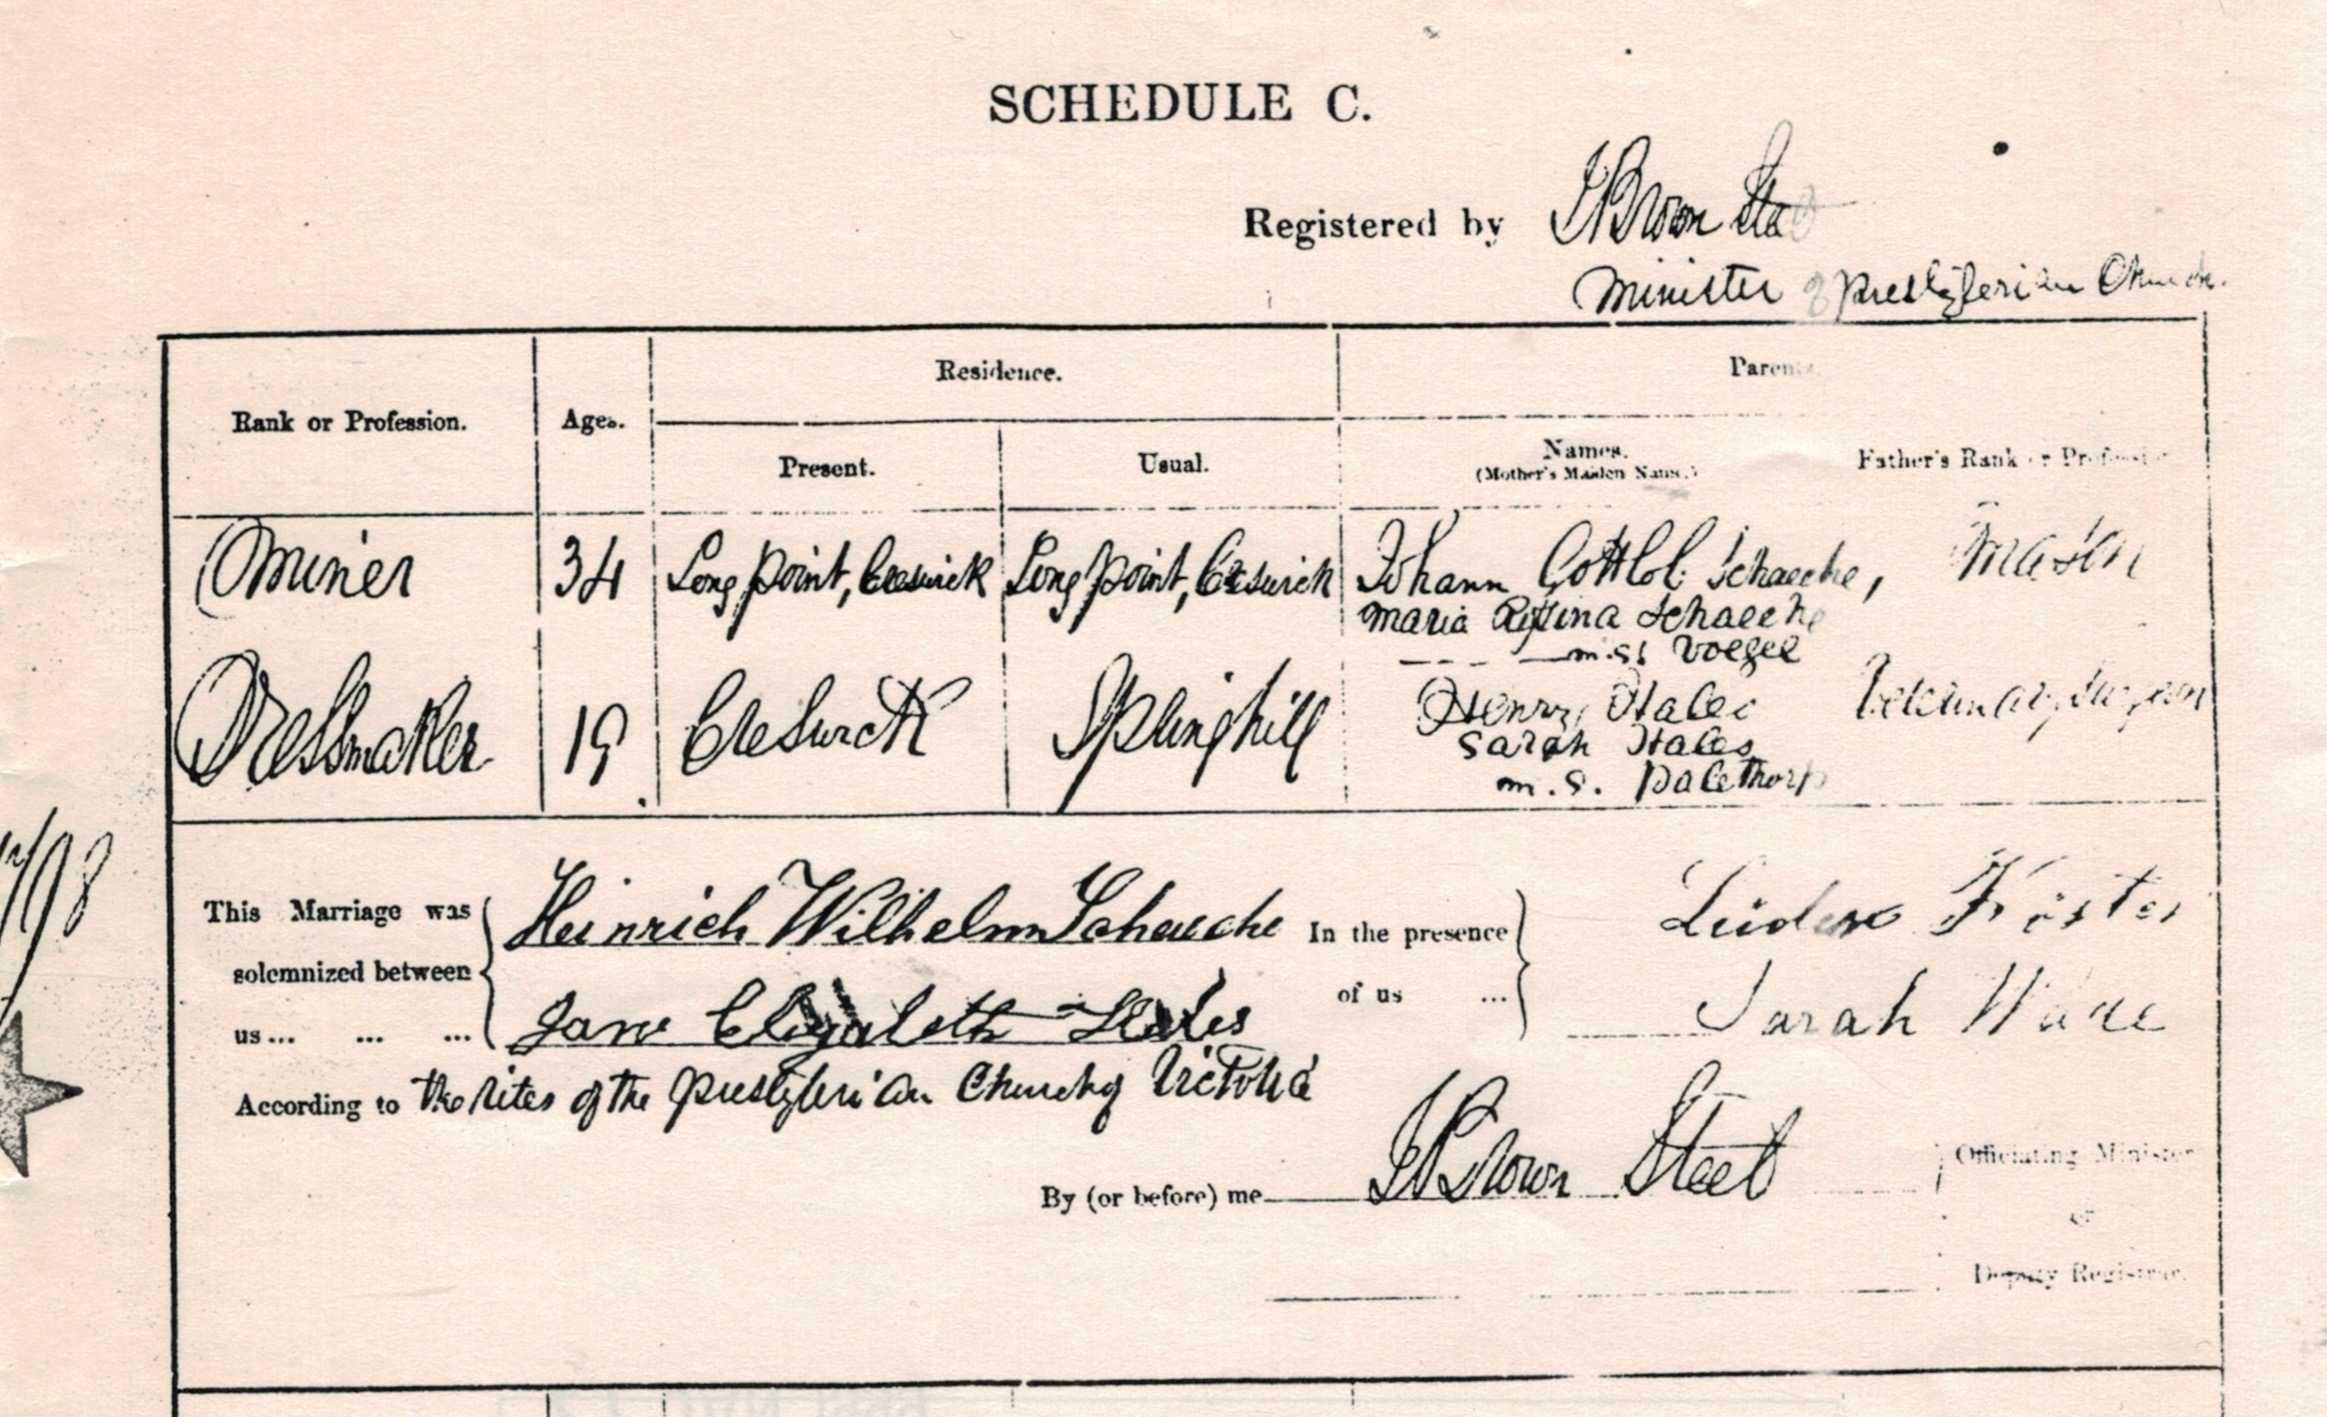 SCHEDULE C.
Registered by J Brown Steel
Minister of Presbyterian Church.
Rank or Profession. Ages. Residence. Parents.
Present. Usual. Names. (Mother's Maiden Name.) Father's Rank or Profession
Miner 34 Long Point, Creswick Long Point, Creswick Johann Gottlob Schaeche, Mason
Maria Schaeche
m.s. Voegel
Dressmaker 19 Creswick Springhill Henry Hales Veterinary Surgeon
Sarah Hales
m.s. Palethorp
This Marriage was solemnized between us... ... ...
Heinrich Wilhelm Schaeche
Jane Elizabeth Hales
In the presence of us ...
Küster
Sarah Ware
According to the rites of the Presbyterian Church of Victoria
By (or before) me J Brown Steel Officiating Minister
or
Deputy Registrar.